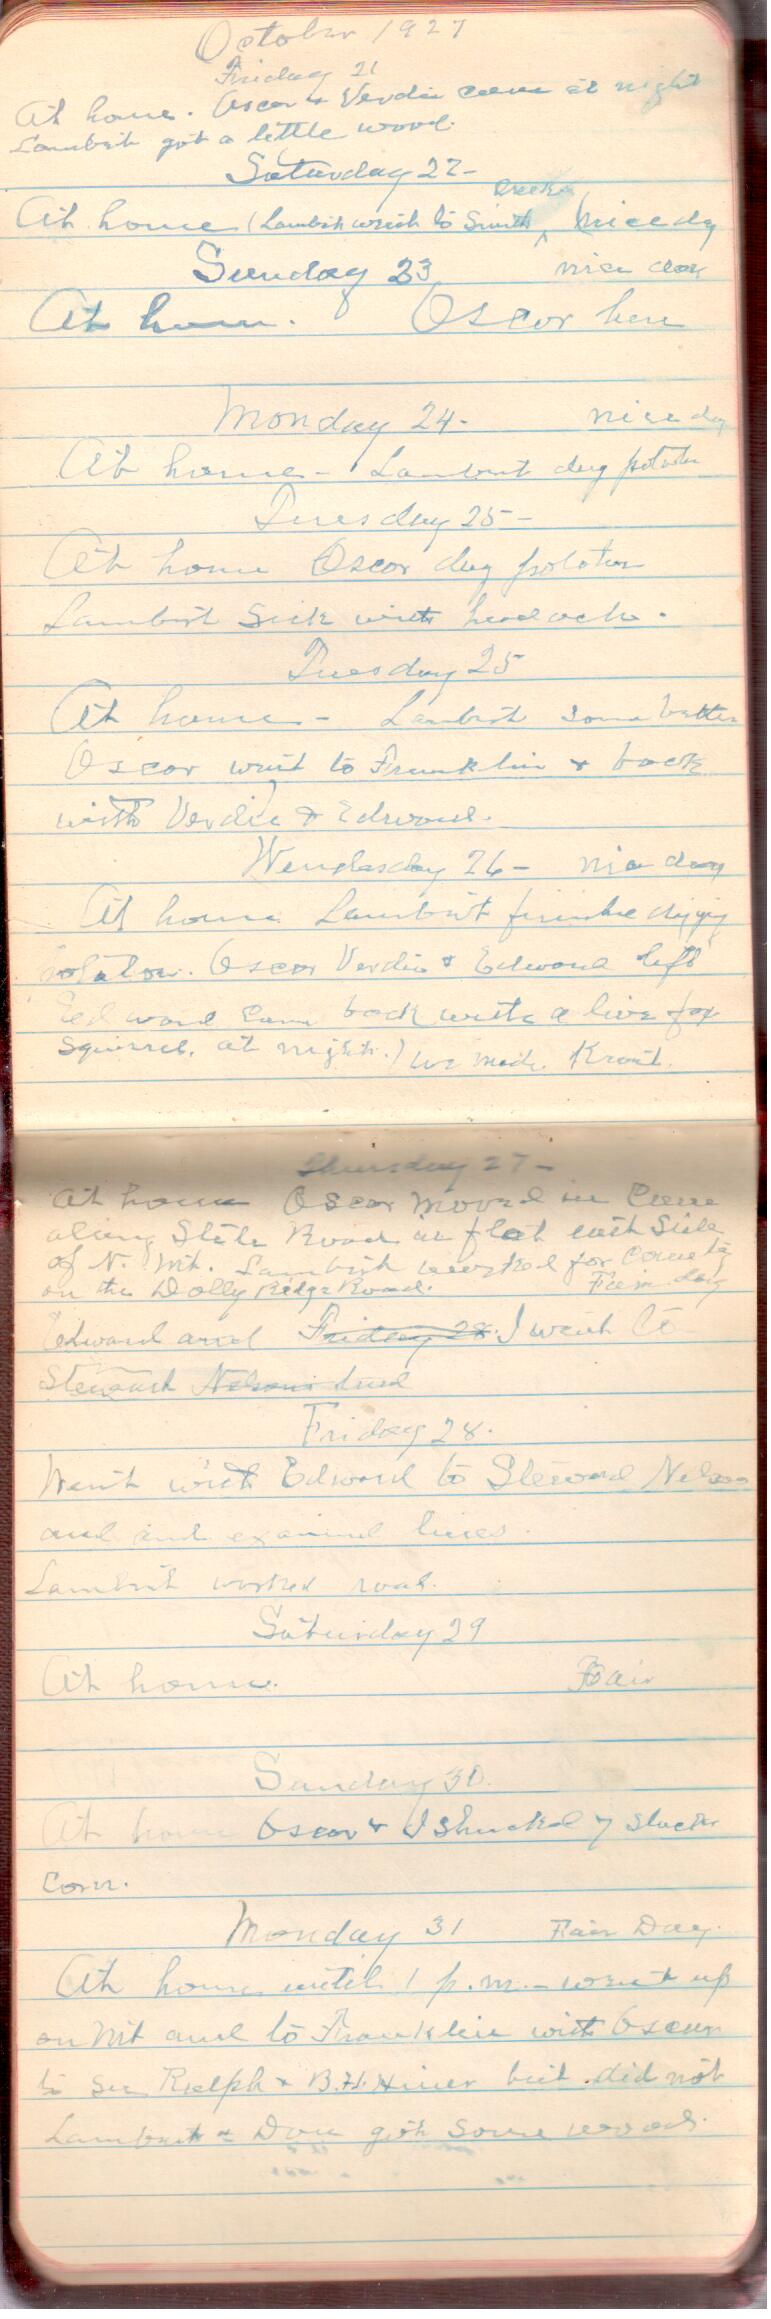 October 1927
Friday 21
At home. Oscar & Verdie came at night
Lambert got a little wood.
Saturday 22-
Creek
At home (Lambert went to Smith nice dy
Sunday 23 nice day
At home. Oscar here
Monday 24- nice day
At home - Lambert dug potatoes
Tuesday 25-
At home Oscar dug potatoes
Lambert sick with headache.
Tuesday 25
At home - Lambert some better
Oscar went to Franklin & back
with Verdie & Edward.
Wendesday 26- nice day
At home Lambert finishe digging
potatoes. Oscar Verdie & Edward left
Edward came back with a live fox
squirrel. at night.) we made Kraut.
Thursday 27-
At home Oscar moved in Cave
along State Road in flat east side
of N. Mt. Lambert worked for County
on the Dolly Ridge Road. Fair day
Edward and Friday 28. I went to
Steward Nelsons land
Friday 28.
Went with Edward to Steward Nelson
and and examined lines.
Lambert worked road.
Saturday 29
At home. Fair
Sunday 30.
At home Oscar & I Shucked 7 shocks
corn.
Monday 31 Fair Day.
At home until 1 p.m. - went up
on Mt and to Franklin with Oscar
to see Ralph & B.H. Hiner but did not
Lambert & Don got some wood.